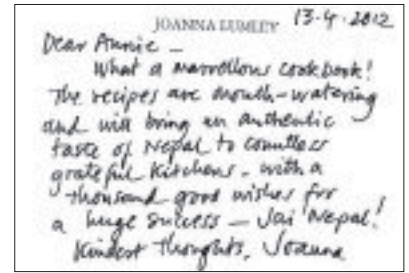 JOANNA LUMLEY 13-4-2012
Dear Annie –
What a marvellous cookbook!
The recipes are mouth-watering
and will bring an authentic
taste of Nepal to countless
grateful kitchens – with a
thousand good wishes for
a huge success – Jai Nepal!
Kindest thoughts, Joanna